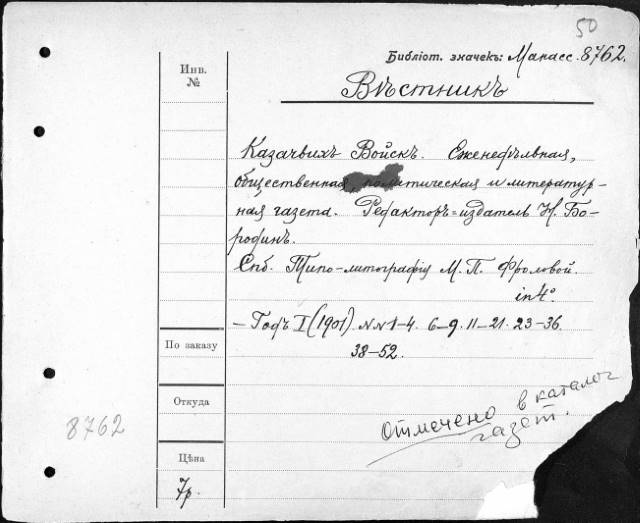 50
Библіот. значекъ: Манасс. 8762.
Инв.
№
Вѣстникъ
Казачьихъ Войскъ. Еженедѣльная,
общественная, политическая и литератур-
ная газета. Редакторъ=издатель Н. Бо-
родинъ.
Спб. Типо-литографія М. П. Фроловой.
in 4°.
— Годъ I (1901). NN 1-4. 6-9. 11-21. 23-36.
38-52.
По заказу
Откуда
8762
Отмечено в каталог
газет.
Цѣна
7р.